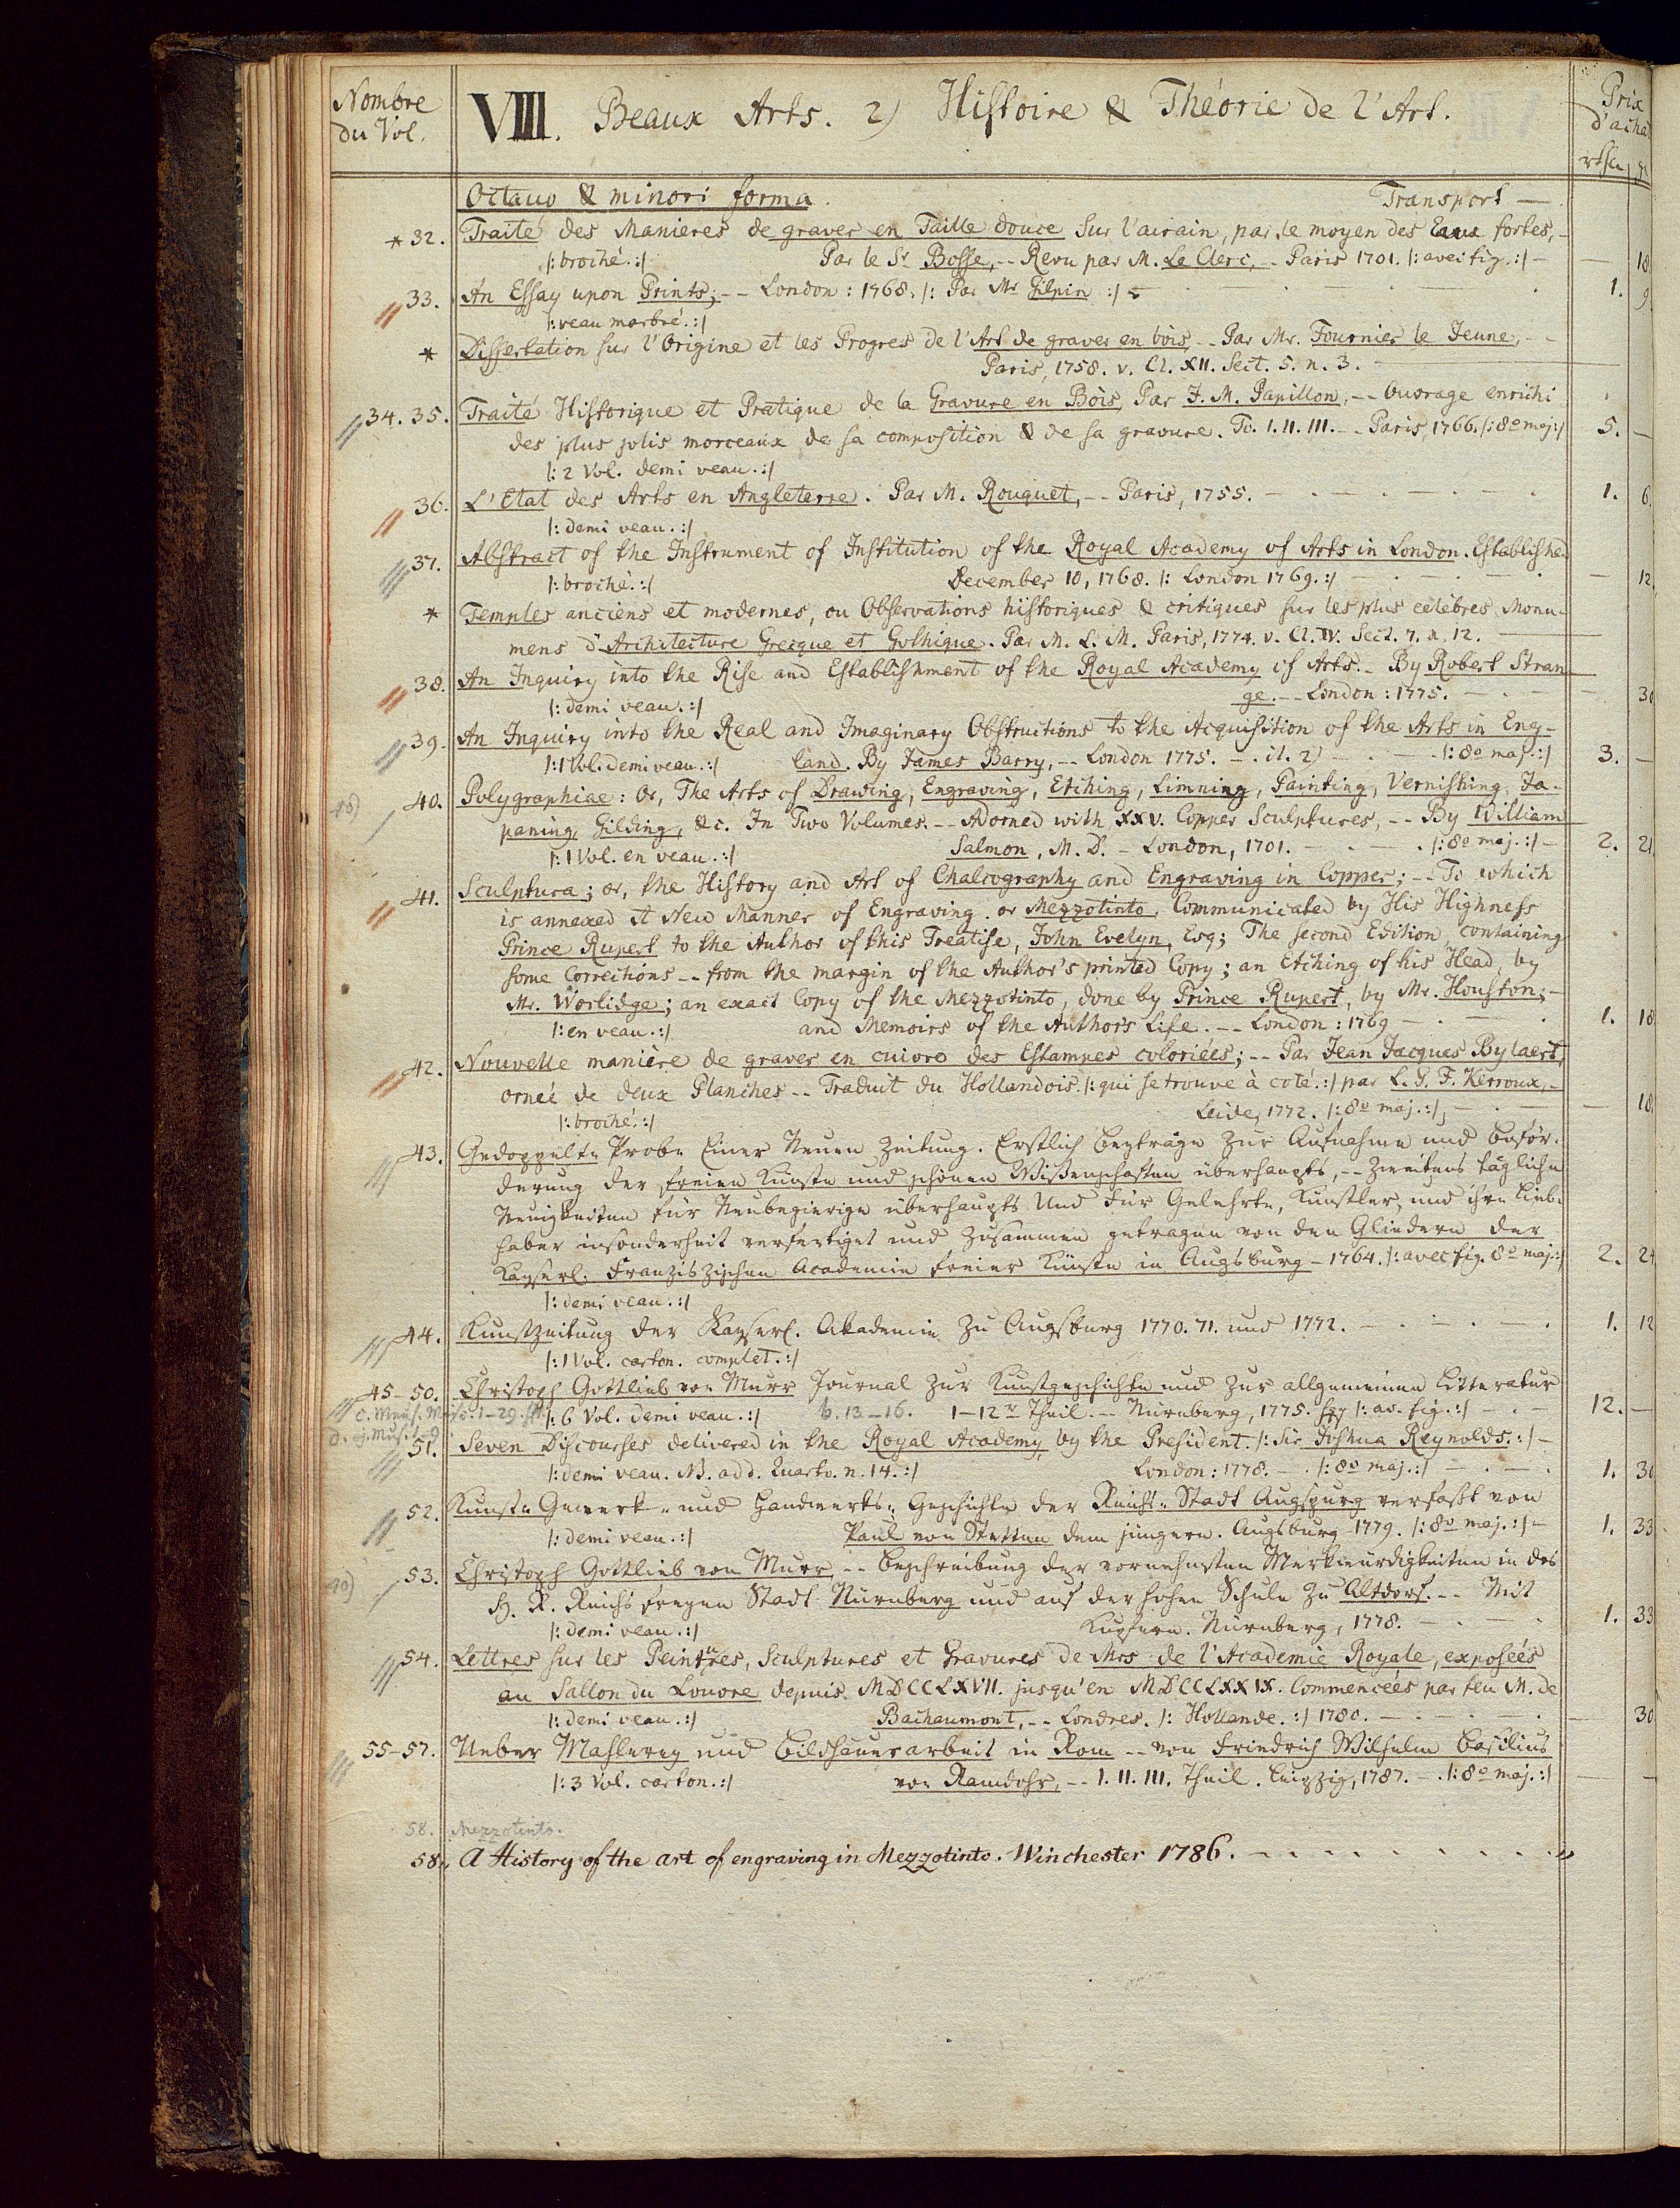 Nombre du Vol.
VIII. Beaux Arts. 2) Histoire & Théorie de l'Art.
Prix d'acha
rthlr
Octavo & minori forma. Transport —
*32. Traité des Manieres de graver en Taille douce sur l'airain, par le moyen des Eaux fortes, -
/: broché. :/ Par le Sr Bosse, -- Revu par M. Le Clerc, - Paris 1701. /: avec fig. :/ — — 18
33. An Essay upon Prints; -- London: 1768. /: Par Mr Gilpin :/ 1. 9
/: veau marbré. :/
* Dissertation sur l'Origine et les Progres de l'Art de graver en bois, -- Par Mr. Fournier le Jeune, --
Paris, 1758. v. Cl. XII. Sect. 5. n. 3. —
34. 35. Traité Historique et Pratique de la Gravure en Bois, Par J. M. Papillon, -- Ouvrage enrichi
des plus jolis morceaux de sa composition & de sa gravure. To. I. II. III. -- Paris, 1766. /: 8o maj :/ 5. —
/: 2 Vol. demi veau. :/
36. L'Etat des Arts en Angleterre. Par M. Rouquet, -- Paris, 1755. — 1. 6.
/: demi veau. :/
37. Abstract of the Instrument of Institution of the Royal Academy of Arts in London. Established
/: broché. :/ December 10, 1768. /: London 1769. :/ — — 12
* Temples anciens et modernes, ou Observations historiques & critiques sur les plus celèbres Monu-
mens d'Architecture Grecque et Gothique. Par M. L. M. Paris, 1774. v. Cl. IV. Sect. 7. n. 12. —
38. An Inquiry into the Rise and Establishment of the Royal Academy of Arts. - By Robert Stran-
/: demi veau. :/ ge. -- London: 1775. — — 30
39. An Inquiry into the Real and Imaginary Obstructions to the Acquisition of the Arts in Eng-
/: 1 Vol. demi veau. :/ land. By James Barry, -- London 1775. - . it. 2) — /: 8o maj. :/ 3. —
40. Polygraphiae: Or, The Arts of Drawing, Engraving, Etching, Limning, Painting, Vernishing, Ja-
paning, Gilding, &c. In Two Volumes. -- Adorned with XXV. Copper Sculptures, -- By William
/: 1 Vol. en veau. :/ Salmon, M. D. - London, 1701. — /: 8o maj. :/ — 2. 21
41. Sculptura; or, the History and Art of Chalcography and Engraving in Copper; -- To which
is annexed A New Manner of Engraving. or Mezzotinto, Communicated by His Highness
Prince Rupert to the Author of this Treatise, John Evelyn, Esq; The second Edition, containing
some Corrections -- from the margin of the Author's printed Copy; an Etching of his Head, by
Mr. Worlidge; an exact Copy of the Mezzotinto, done by Prince Rupert, by Mr. Houston; -
/: en veau. :/ and Memoirs of the Authors Life. -- London: 1769 — 1. 18
42. Nouvelle manière de graver en cuivre des Estampes coloriées; -- Par Jean Jacques Bylaert,
orneé de deux Planches -- Traduit du Hollandois /: qui se trouve à coté. :/ par L. G. F. Kerroux, -
/: broché. :/ Leide, 1772. /: 8o maj. :/, — — 18.
43. Gedoppelte Probe Einer Neuen Zeitung. Erstlich Beyträge zur Aufnahme und Beför-
derung der freien Künste und schönen Wißenschaften überhaupts, -- Zweitens täglichen
Neuigkeiten für Neubegierige überhaupts Und Für Gelehrte, Künstler, und ihre Lieb-
haber insonderheit verfertiget und zusammen getragen von den Gliedern der
Kayserl. Franziszischen Academie freier Künste in Augsburg - 1764. /: avec fig. 8o maj. :/ 2. 24
/: demi veau. :/
44. Kunstzeitung der Kayserl. Akademie zu Augsburg 1770. 71. und 1772. — 1. 12
/: 1 Vol. carton. complet. :/
45-50. Christoph Gottlieb von Murr Journal zur Kunstgeschichte und zur allgemeinen Litteratur
/: 6 Vol. demi veau. :/ b. 13-16. 1-12r Theil. -- Nürnberg, 1775. sqq /: av. fig. :/ — 12. —
51. Seven Discourses delivered in the Royal Academy by the President. /: Sir Joshua Reynolds. :/ -
/: demi veau. NB. add. Quarto. n. 14. :/ London: 1778. — /: 8o maj. :/ — 1. 30
52. Kunst- Gewerb- und Handwerks- Geschichte der Reichs-Stadt Augspurg verfaßt von
/: demi veau. :/ Paul von Stetten dem jüngern. Augsburg 1779. /: 8o maj. :/ - 1. 33
53. Christoph Gottlieb von Murr, -- Beschreibung der vornehmsten Merkwürdigkeiten in des
H. R. Reichs freyen Stadt Nürnberg und auf der hohen Schule zu Altdorf. -- Mit
/: demi veau. :/ Kupfern. Nürnberg, 1778. — 1. 33
54. Lettres sur les Peintures, Sculptures et Gravures de Mrs de l'Academie Royale, exposées
au Sallon du Louvre depuis MDCCLXVII. jusqu'en MDCCLXXIX. Commenceés par feu M. de
/: demi veau. :/ Bachaumont, -- Londres. /: Hollande. :/ 1780. — — 30
55-57. Ueber Mahlerey und Bildhauerarbeit in Rom -- von Friedrich Wilhelm Basilius
/: 3 Vol. carton. :/ von Ramdohr, -- I. II. III. Theil. Leipzig, 1787. — /: 8o maj. :/ — —
58. Mezzotinto.
58. A History of the art of engraving in Mezzotinto. Winchester 1786.